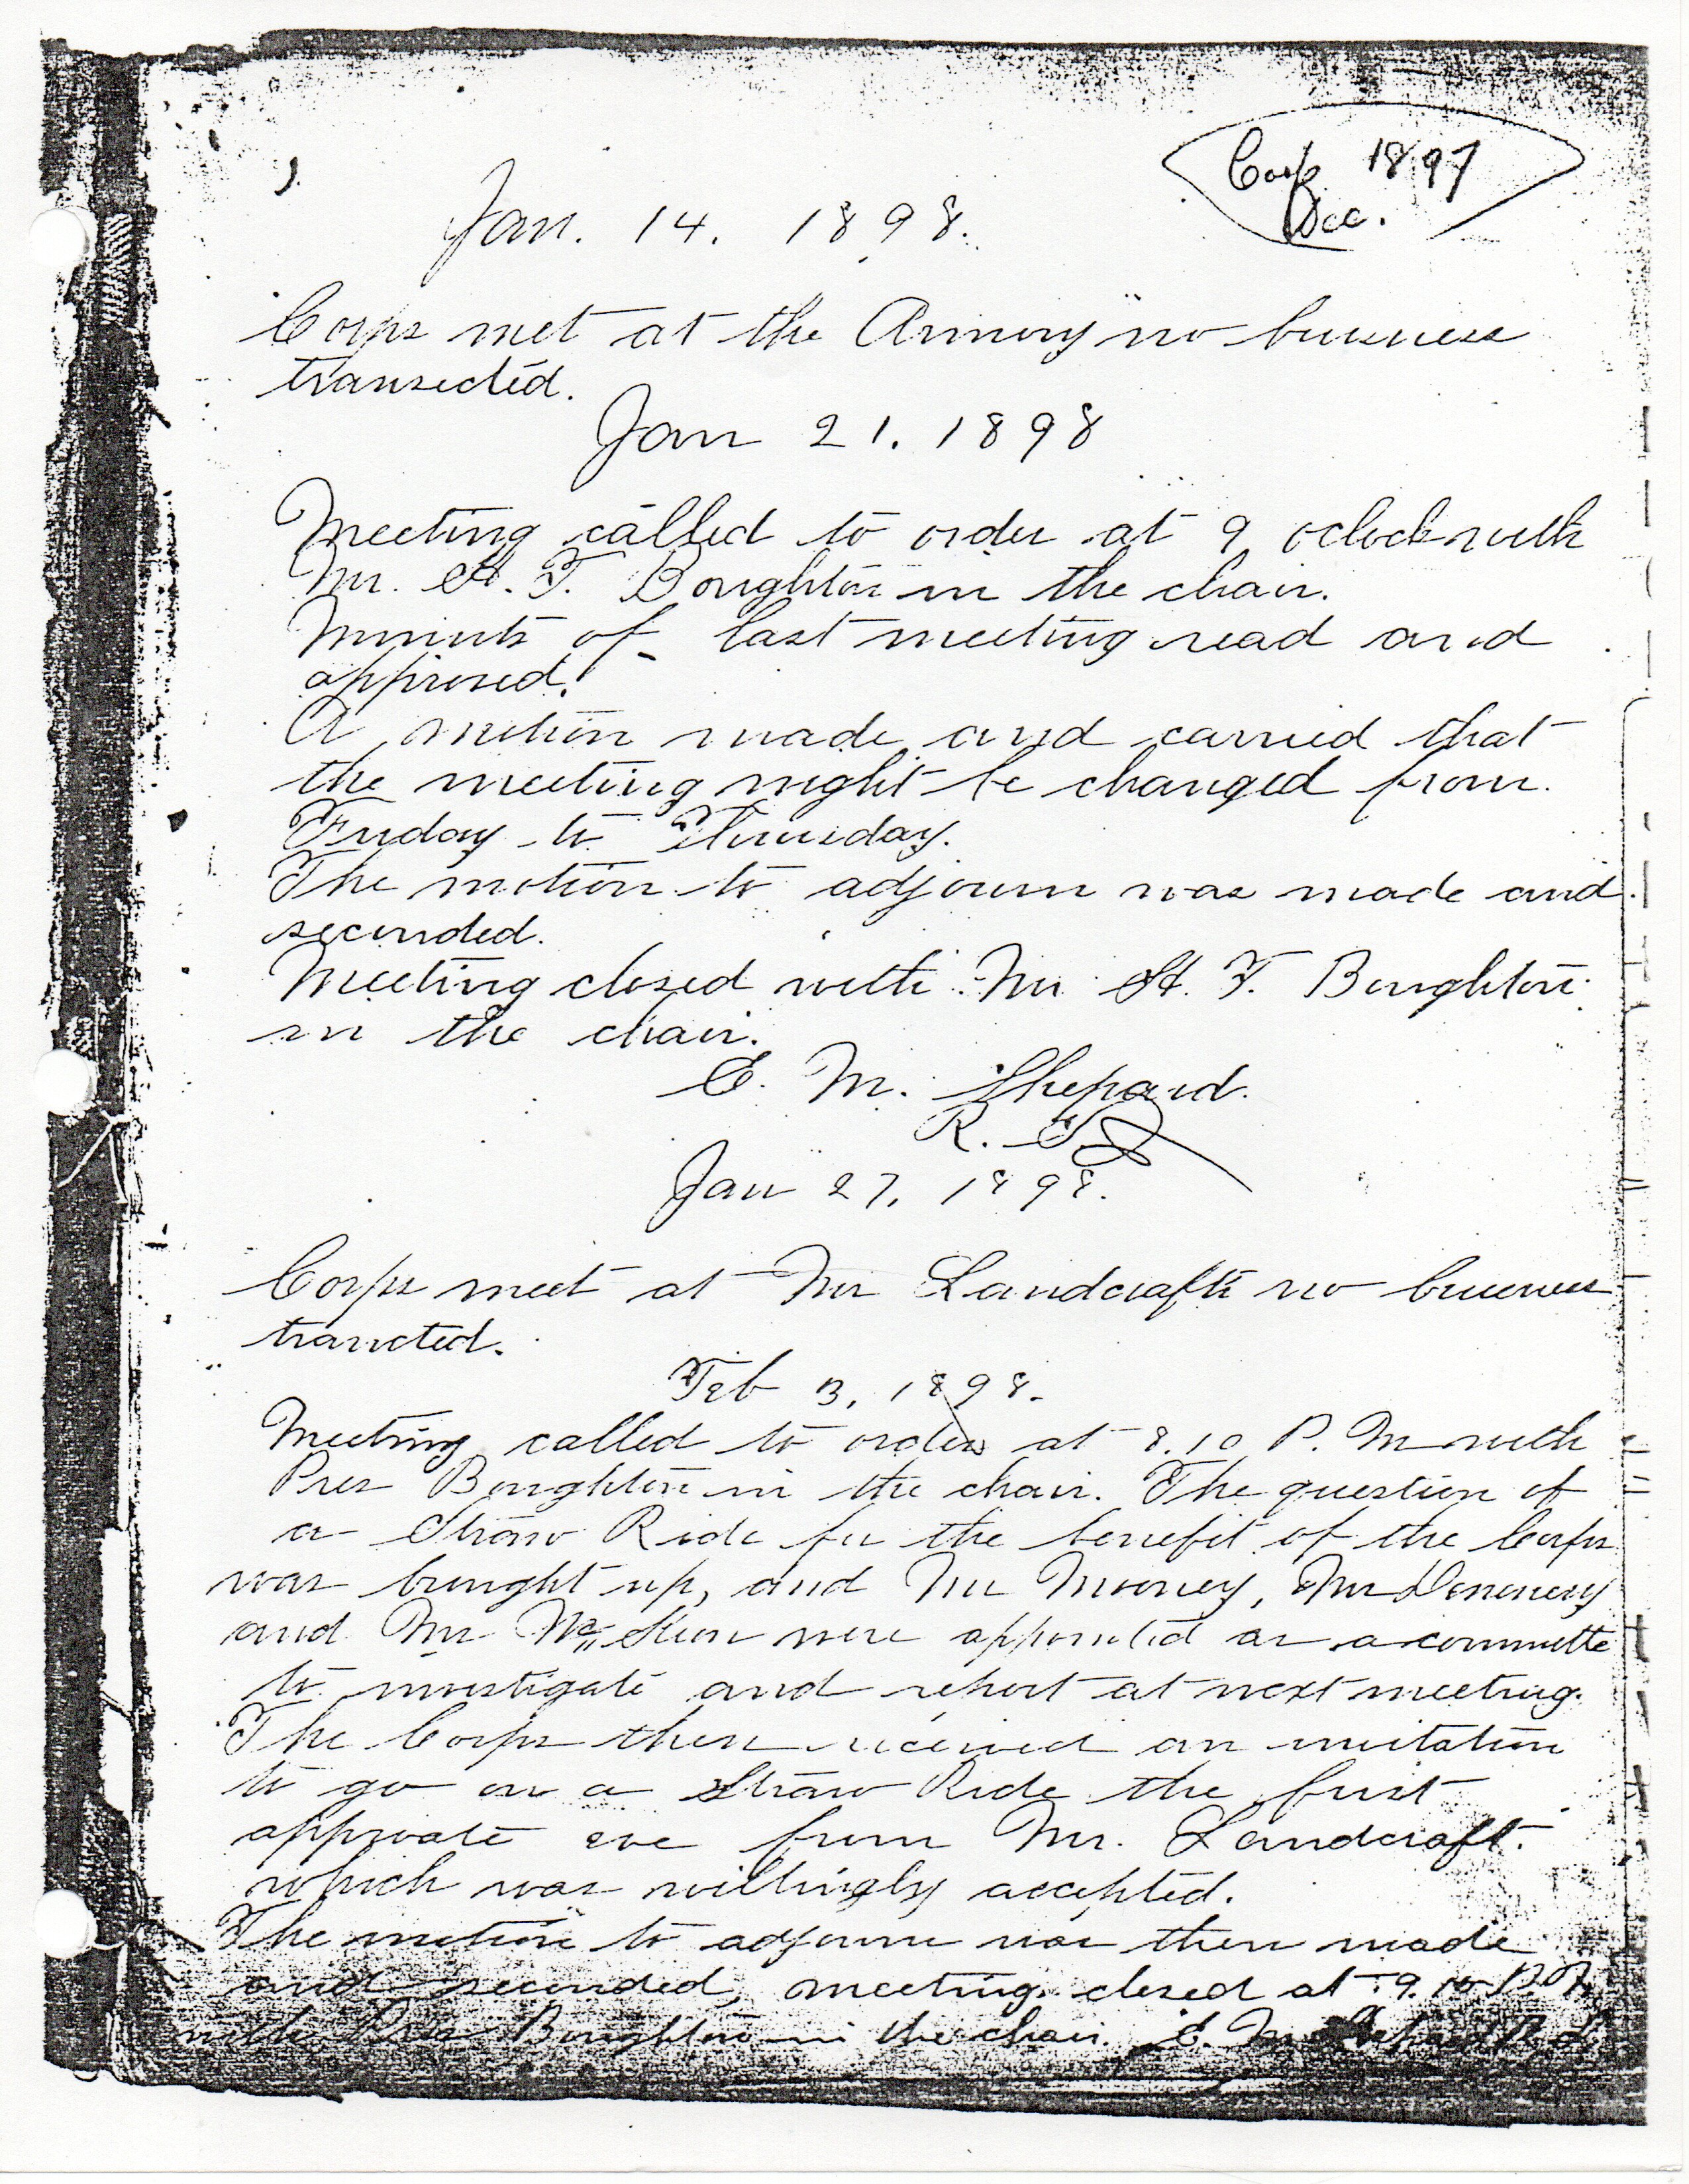 Corp. 1897
Dec.
Jan. 14. 1898.
Corps met at the Armory no business
transected.
Jan 21. 1898
Meeting called to order at 9 oclock with
Mr. H. F. Boughton in the chair.
Minuts of last meeting read and
approved.
A motion made and carried that
the meeting night be changed from
Friday to Thursday.
The motion to adjourn was made and
seconded.
Meeting closed with Mr H. F. Boughton
in the chair.
E. M. Shepard.
R. S.
Jan 27, 1898.
Corps meet at Mr Landcraft no business
trancted.
Feb 3, 1898.
Meeting called to order at 8.10 P. M with
Pres Boughton in the chair. The question of
a Straw Ride for the benefit of the Corps
was brought up, and Mr Mooney, Mr
and Mr were appointed as a committe
to investigate and report at next meeting.
The Corps then received an invitation
to go on a Straw Ride the first
approate eve from Mr. Landcraft.
which was willingly accepted.
The motion to adjourn was then made
and seconded, meeting closed at 9.10 P.M
with Pres Boughton in the chair. E. M Shepard R. S.